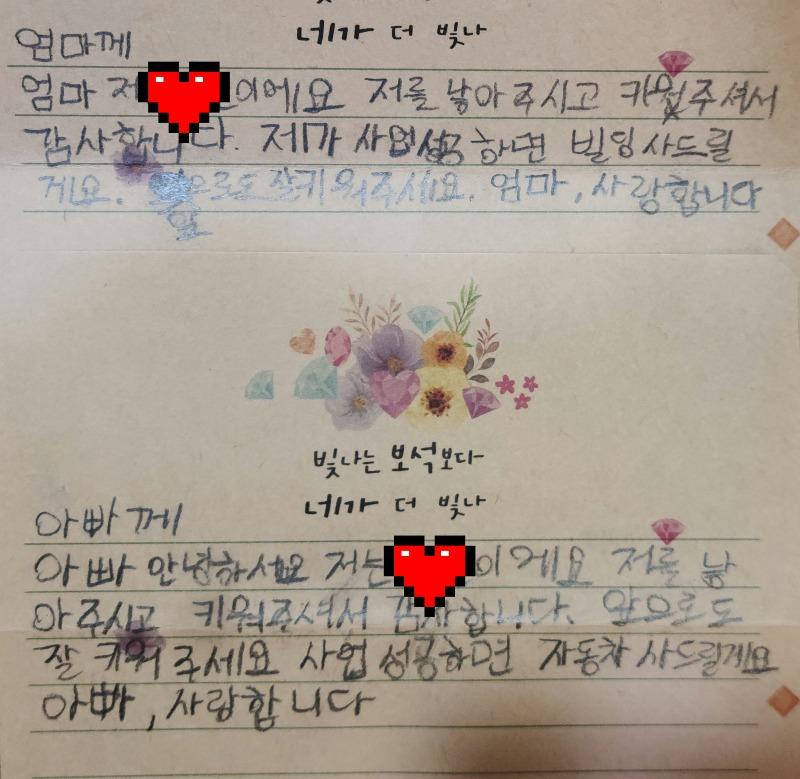 네가 더 빛나
엄마께
엄마 저 이에요 저를 낳아주시고 키워주셔서
감사합니다. 제가 사업성공하면 빌딩사드릴
게요. 앞으로도 잘키워주세요. 엄마, 사랑합니다
앞
빛나는 보석보다
네가 더 빛나
아빠께
아빠 안녕하세요 저는 이에요 저를 낳
아주시고 키워주셔서 감사합니다. 앞으로도
잘 키워 주세요 사업 성공하면 자동차 사드릴게요
아빠, 사랑합니다